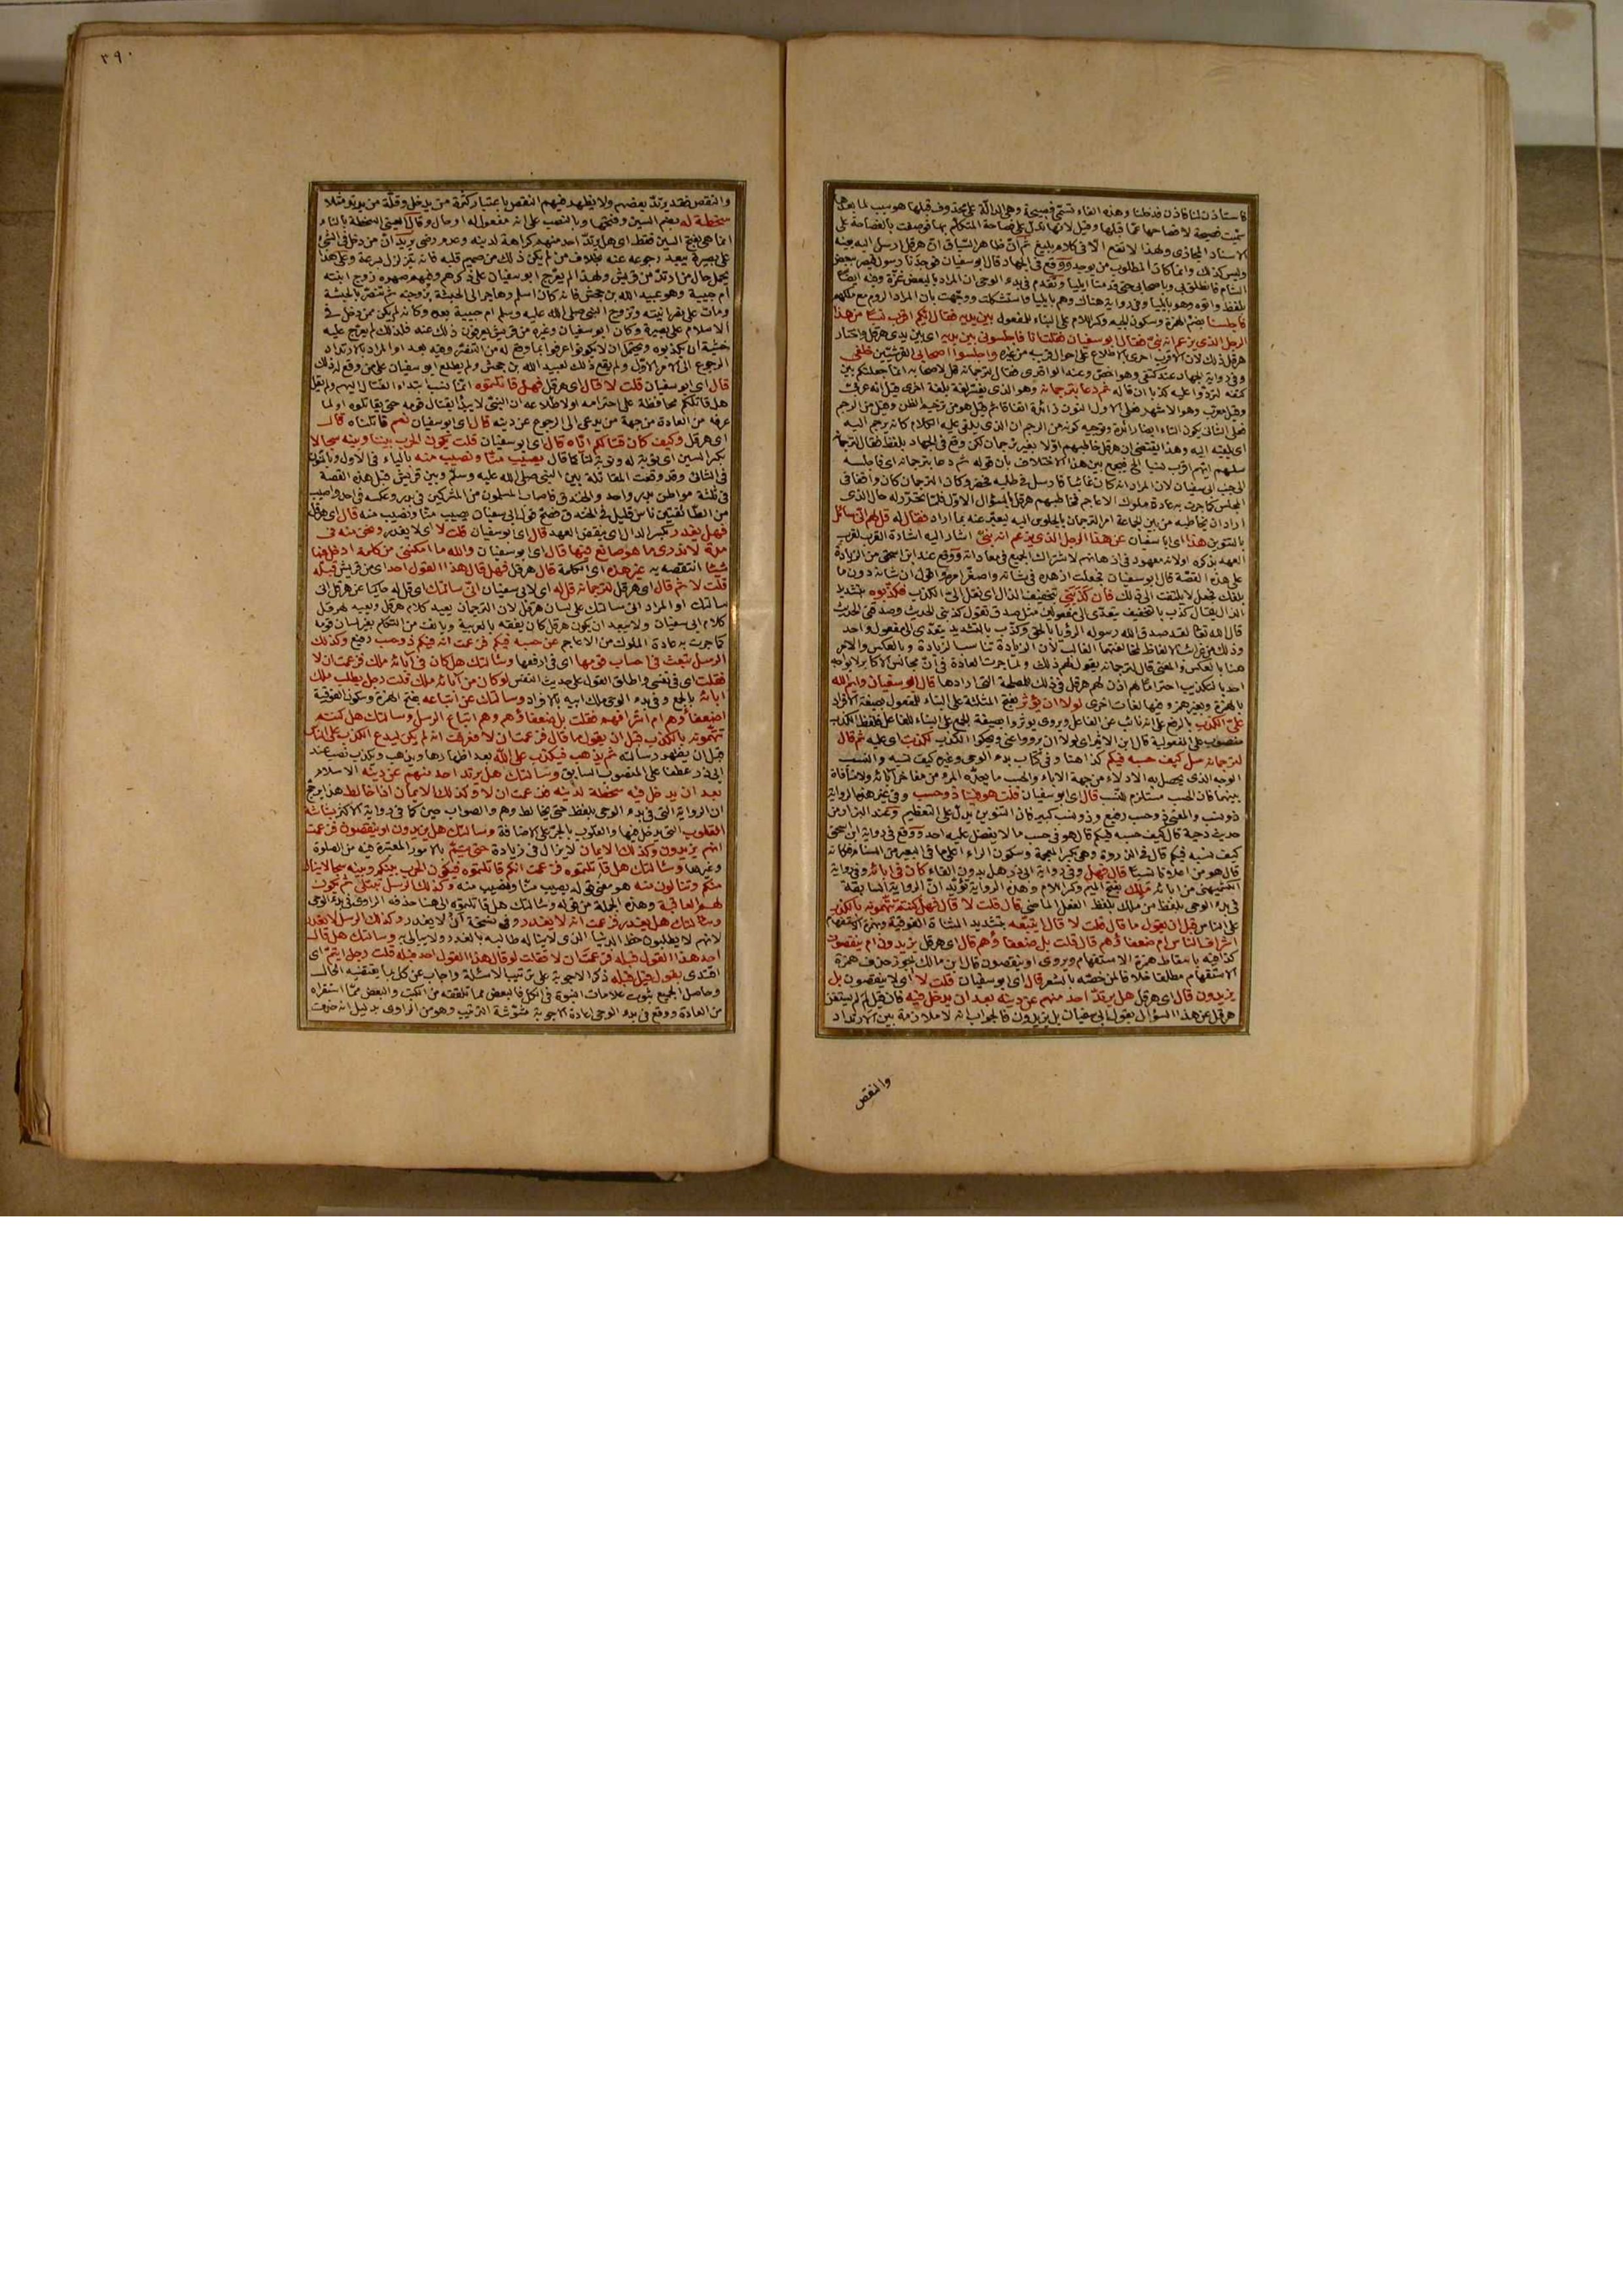 فاستأذن لنا فاذن فدخلنا وهذه الفاء تسمى فصيحة وهي الدالة على محذوف قبلها هو سبب لما بعدها
سميت فصيحة لافصاحها عما قبلها وقيل لانها تدل على فصاحة المتكلم بها فوصفت بالفصاحة على
الاسناد المجازى ولهذا لا تقع الا فى كلام بليغ ثم ان ظاهر السياق ان هرقل ارسل اليه بعينه
وليس كذلك وانما كان المطلوب من يوجد ووقع فى الجهاد قال ابو سفيان فوجدنا رسول قيصر ببعض
الشام فانطلق بى وباصحابى حتى قدمنا ايليا وتقدم فى بدء الوحى ان المراد بالبعض غزة وفيه ايضا
بلفظ واتوه وهو بايليا وفى رواية هناك وهم بايليا واستشكلت ووجهت بان المراد الروم مع ملكهم
فاجلسنا بضم الهمزة وسكون الجيم وكسر اللام على البناء للمفعول بين يديه فقال ايكم اقرب نسبا من هذا
الرجل الذى يزعم انه نبى فقال ابو سفيان فقلت انا فاجلسونى بين يديه اى بين يدى هرقل واختار
هرقل ذلك لان الاقرب احرى بالاطلاع على احوال قريبه من غيره واجلسوا اصحابى القرشيين خلفى
وفى رواية الجهاد عند كتفى وهو اخص وعند الواقدى فقال لترجمانه قل لاصحابه انما جعلتكم بين
كتفه لتردوا عليه كذبا ان قاله ثم دعا بترجمانه وهو الذى يفسر لغة بلغة اخرى قيل انه عربى
وقيل معرب وهو الاشهر فعلى الاول النون زائدة
الى جنب ابى سفيان لان المراد انه كان غائبا فارسل فى طلبه فحضر وكان الترجمان كان واقفا فى
المجلس كما جرت به عادة ملوك الاعاجم فخاطبهم هرقل بالسؤال الاول فلما تحرر له حال الذى
اراد ان يخاطبه من بين الجماعة امر الترجمان بالجلوس اليه ليعبر عنه بما اراد فقال له قل لهم انى سائل
بالتنوين هذا اى ابا سفيان عن هذا الرجل الذى يزعم انه نبى اشار اليه اشارة القرب لقرب
العهد بذكره او لانه معهود فى اذهانهم لاشتراك الجميع فى معاداته ووقع عند ابن اسحق من الزيادة
على هذه القصة قال ابو سفيان فجعلت ازهده فى شانه واصغر امره واقول ان شانه دون ما
بلغك فجعل لا يلتفت الى ذلك فان كذبنى بتخفيف الذال اى نقل الى الكذب فكذبوه بتشديد
الذال يقال كذب بالتخفيف يتعدى الى مفعولين مثل صدق تقول كذبنى الحديث وصدقنى الحديث
قال الله تعالى لقد صدق الله رسوله الرؤيا بالحق وكذب بالتشديد يتعدى الى مفعول واحد
وذلك من غرائب الالفاظ لمخالفتهما الغالب لان الزيادة تناسب الزيادة وبالعكس والامر
هنا بالعكس والمعنى قال لترجمانه يقول لهم ذلك ولما جرت العادة فى ان مجالس الاكابر لا يواجه
احد بالتكذيب احتراما لهم اذن لهم هرقل فى ذلك للمصلحة التى ارادها قال ابو سفيان وايم الله
بالهمزة وبغير همز وفيها لغات اخرى لولا ان يؤثر بفتح المثلثة على البناء للمفعول بصيغة الافراد
على الكذب بالرفع على انه نائب عن الفاعل ويروى يوثروا بصيغة الجمع على البناء للفاعل فلفظ الكذب
منصوب على المفعولية قال ابن الاثير اى لولا ان يرووا عنى ويحكوا الكذب لكذبت اى عليه ثم قال
لترجمانه سل كيف حسبه فيكم كذا هنا وفى كتاب بدء الوحى وغيره كيف نسبه والنسب
الوجه الذى يحصل به الادلاء من جهة الآباء والحسب ما يعده المرء من مفاخر آبائه ولا منافاة
بينهما فان الحسب مستلزم النسب قال اى ابو سفيان قلت هو فينا ذو حسب وفى غير هذه الرواية
ذو نسب والمعنى ذو حسب رفيع وذو نسب كبير فان التنوين يدل على التعظيم وعند البزار من
حديث دحية قال كيف حسبه فيكم قال هو فى حسب ما لا يفضل عليه احد ووقع فى رواية ابن اسحق
كيف نسبه فيكم قال فى الذروة وهى بكسر المعجمة وسكون الراء اعلى ما فى البعير من السنام فكانه
قال هو من اعلانا نسبا قال فهل وفى رواية ابى ذر هل بدون الفاء كان فى آبائه وفى رواية
الكشميهنى من آبائه ملك بفتح الميم وكسر اللام وهذه الرواية تؤيد ان الرواية السابقة
فى بدء الوحى بلفظ من ملك بلفظ الفعل الماضى قال قلت لا قال فهل كنتم تتهمونه بالكذب
على الناس قبل ان يقول ما قال قلت لا قال ايتبعه بتشديد المثناة الفوقية وبهمزة الاستفهام
اشراف الناس ام ضعفاؤهم قال قلت بل ضعفاؤهم قال اى هرقل يزيدون ام ينقصون
كذا فيه باسقاط همزة الاستفهام ويروى او ينقصون قال ابن مالك يجوز حذف همزة
الاستفهام مطلقا خلافا لمن خصه بالشعر قال اى ابو سفيان قلت لا اى لا ينقصون بل
يزيدون قال اى هرقل هل يرتد احد منهم عن دينه بعد ان يدخل فيه فان قيل لم لم يستغن
هرقل عن هذا السؤال بقول ابى سفيان بل يزيدون فالجواب انه لا ملازمة بين الارتداد
والنقص
٣٩٠
والنقص فقد يرتد بعضهم ولا يظهر فيهم النقص باعتبار كثرة من يدخل وقلة من يرتد مثلا
سخطة له بضم السين وفتحها وبالنصب على انه مفعول له او حال وقال العينى السخطة بالتاء
انما هى بفتح السين فقط اى هل يرتد احد منهم كراهة لدينه وعدم رضى يريد ان من دخل فى الشئ
على بصيرة يبعد رجوعه عنه بخلاف من لم يكن ذلك من صميم قلبه فانه يتزلزل بسرعة وعلى هذا
يحمل حال من ارتد من قريش ولهذا لم يعرج ابو سفيان على ذكرهم وفيهم صهره زوج ابنته
ام حبيبة وهو عبيد الله بن جحش فانه كان اسلم وهاجر الى الحبشة بزوجته ثم تنصر بالحبشة
ومات على نصرانيته وتزوج النبى صلى الله عليه وسلم ام حبيبة بعده وكانه لم يكن ممن دخل فى
الاسلام على بصيرة وكان ابو سفيان وغيره من قريش يعرفون ذلك عنه فلذلك لم يعرج عليه
خشية ان يكذبوه ويحتمل ان لا يكونوا عرفوا بما وقع له من التنصر وفيه بعد او المراد بالارتداد
الرجوع الى الامر الاول ولم يقع ذلك لعبيد الله بن جحش ولم يطلع ابو سفيان على من وقع له ذلك
قال اى ابو سفيان قلت لا قال اى هرقل فهل قاتلتموه انما نسب ابتداء القتال اليهم ولم يقل
هل قاتلكم محافظة على احترامه او لاطلاعه ان النبى لا يبدأ بقتال قومه حتى يقاتلوه او لما
عرفه من العادة من جهة من يدعى الى الرجوع عن دينه قال اى ابو سفيان نعم قاتلناه قال
اى هرقل وكيف كان قتالكم اياه قال اى ابو سفيان قلت تكون الحرب بيننا وبينه سجالا
بكسر السين اى نوبة له ونوبة لنا كما قال يصيب منا ونصيب منه بالياء فى الاول وبالنون
فى الثانى وقد وقعت المقاتلة بين النبى صلى الله عليه وسلم وبين قريش قبل هذه القصة
فى ثلثة مواطن بدر واحد والخندق فاصاب المسلمون من المشركين فى بدر وعكسه فى احد واصيب
من الطائفتين ناس قليل فى الخندق فصح قول ابى سفيان يصيب منا ونصيب منه قال اى هرقل
فهل يغدر بكسر الدال اى ينقض العهد قال اى ابو سفيان قلت لا اى لا يغدر ونحن منه فى
مدة لا ندرى ما هو صانع فيها قال اى ابو سفيان والله ما امكننى من كلمة ادخل فيها
شيئا انتقصه به غير هذه اى الكلمة قال هرقل فهل قال هذا القول احد اى من قريش قبله
قلت لا ثم قال اى هرقل لترجمانه قل له اى لابى سفيان انى سالتك اى قل له حاكيا عن هرقل انى
سالتك او المراد انى سالتك على لسان هرقل لان الترجمان يعيد كلام هرقل ويعيد لهرقل
كلام ابى سفيان ولا يبعد ان يكون هرقل كان يفقه بالعربية ويانف من التكلم بغير لسان قومه
كما جرت به عادة الملوك من الاعاجم عن حسبه فيكم فزعمت انه فيكم ذو حسب رفيع وكذلك
الرسل تبعث فى احساب قومها اى فى ارفعها وسالتك هل كان فى آبائه ملك فزعمت ان لا
فقلت اى فى نفسى واطلق القول على حديث النفس لو كان من آبائه ملك قلت رجل يطلب ملك
آبائه بالجمع وفى بدء الوحى ملك ابيه بالافراد وسالتك عن اتباعه بفتح الهمزة وسكون الفوقية
اضعفاؤهم ام اشرافهم فقلت بل ضعفاؤهم وهم اتباع الرسل وسالتك هل كنتم
تتهمونه بالكذب قبل ان يقول ما قال فزعمت ان لا فعرفت انه لم يكن ليدع الكذب على الناس
قبل ان يظهر رسالته ثم يذهب فيكذب على الله بعد اظهارها ويذهب ويكذب نصب عند
ابى ذر عطفا على المنصوب السابق وسالتك هل يرتد احد منهم عن دينه الاسلام
بعد ان يدخل فيه سخطة لدينه فزعمت ان لا وكذلك الايمان اذا خالط هذا يرجح
ان الرواية التى فى بدء الوحى بلفظ حتى يخالط وهم والصواب حين كما فى رواية الاكثر بشاشة
القلوب التى يدخل فيها والقلوب بالجر على الاضافة وسالتك هل يزيدون او ينقصون فزعمت
انهم يزيدون وكذلك الايمان لا يزال فى زيادة حتى يتم بالامور المعتبرة فيه من الصلوة
وغيرها وسالتك هل قاتلتموه فزعمت انكم قاتلتموه فيكون الحرب بينكم وبينه سجالا ينال
منكم وتنالون منه هو معنى قوله يصيب منا ونصيب منه وكذلك الرسل تبتلى ثم تكون
لهم العاقبة وهذه الجملة من قوله وسالتك هل قاتلتموه الى هنا حذفه الراوى فى بدء الوحى
وسالتك هل يغدر فزعمت انه لا يغدر وفى نسخة ان لا يغدر وكذلك الرسل لا تغدر
لانهم لا يطلبون حظ الدنيا الذى لا ينال طالبه بالغدر ولا يبالى به وسالتك هل قال
احد هذا القول قبله فزعمت ان لا فقلت لو قال هذا القول احد قبله قلت رجل ايتم اى
اقتدى بقول قيل قبله ذكر الاجوبة على ترتيب الاسئلة واجاب عن كل بما يقتضيه الحال
وحاصل الجميع ثبوت علامات النبوة فى الكل فالبعض مما تلقفه من الكتب والبعض مما استقراه
من العادة ووقع فى بدء الوحى اعادة الاجوبة مشوشة الترتيب وهو من الراوى بدليل انه حذف